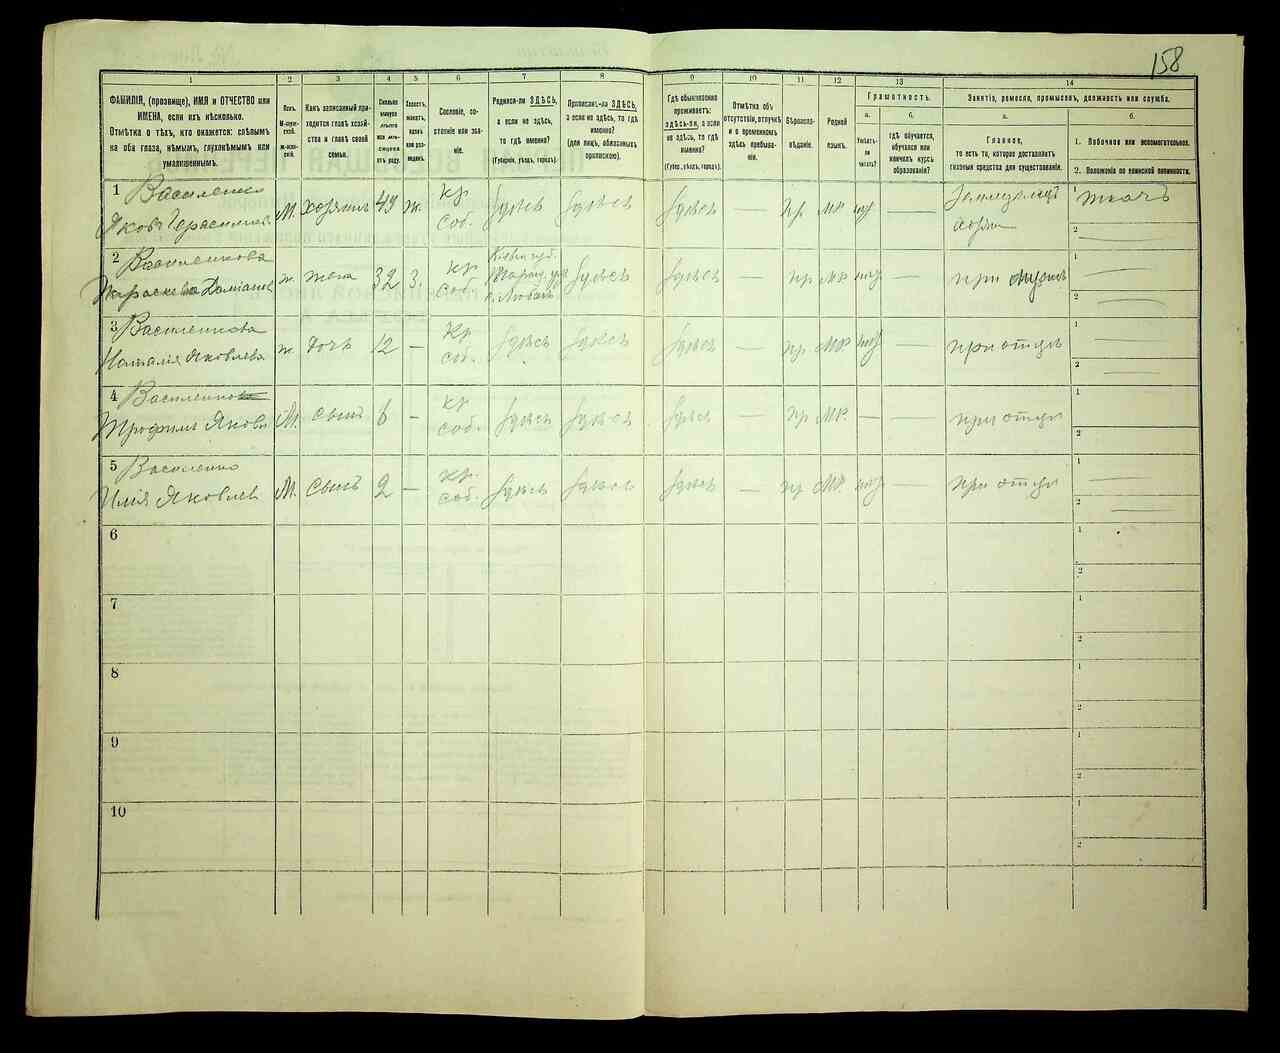 158
1 2 3 4 5 6 7 8 9 10 11 12 13 14
ФАМИЛІЯ, (прозвище), ИМЯ и ОТЧЕСТВО или
ИМЕНА, если ихъ нѣсколько.
Отмѣтка о тѣхъ, кто окажется: слѣпымъ
на оба глаза, нѣмымъ, глухонѣмымъ или
умалишеннымъ.
Полъ.
М-мужской.
Ж-женскій.
Какъ записанный приходится главѣ хозяйства и главѣ своей семьи.
Сколько минуло лѣтъ или мѣсяцевъ отъ роду.
Холостъ, женатъ, вдовъ или разведенъ.
Сословіе, состояніе или званіе.
Родился-ли ЗДѢСЬ,
а если не здѣсь,
то гдѣ именно?
(Губернія, уѣздъ, городъ).
Приписанъ-ли ЗДѢСЬ,
а если не здѣсь, то гдѣ
именно?
(для лицъ, обязанныхъ
припискою).
Гдѣ обыкновенно
проживаетъ:
здѣсь-ли, а если
не здѣсь, то гдѣ
именно?
(Губер., уѣздъ, городъ).
Отмѣтка объ
отсутствіи, отлучкѣ
и о временномъ
здѣсь пребываніи.
Вѣроисповѣданіе.
Родной
языкъ.
Грамотность.
а. б.
Умѣетъ-ли читать?
гдѣ обучается,
обучался или
кончилъ курсъ
образованія?
Занятіе, ремесло, промыселъ, должность или служба.
а. б.
Главное,
то есть то, которое доставляетъ
главныя средства для существованія.
1. Побочное или вспомогательное.
2. Положеніе по воинской повинности.
1 Василенко
Яковъ Герасимовъ М. хозяинъ 49 ж. кр соб. здѣсь здѣсь здѣсь — пр мр — Земледѣлецъ 1 ткачъ
2
2 Василенкова
Параскева Даміанов ж жена 32 З. кр соб. Кіевск губ. здѣсь здѣсь — пр мр — при мужѣ 1 —
2 —
3 Василенкова
Наталія Яковлева ж. дочь 12 — кр соб. здѣсь здѣсь здѣсь — пр мр — при отцѣ 1 —
2 —
4 Василенко
Трофимъ Яковл М. сынъ 6 — кр соб. здѣсь здѣсь здѣсь — пр мр — — при отцѣ 1
2
5 Василенко
Илія Яковлев М. сынъ 2 — кр соб. здѣсь здѣсь здѣсь — пр мр — при отцѣ 1 —
2 —
6 1
2
7 1
2
8 1
2
9 1
2
10 1
2